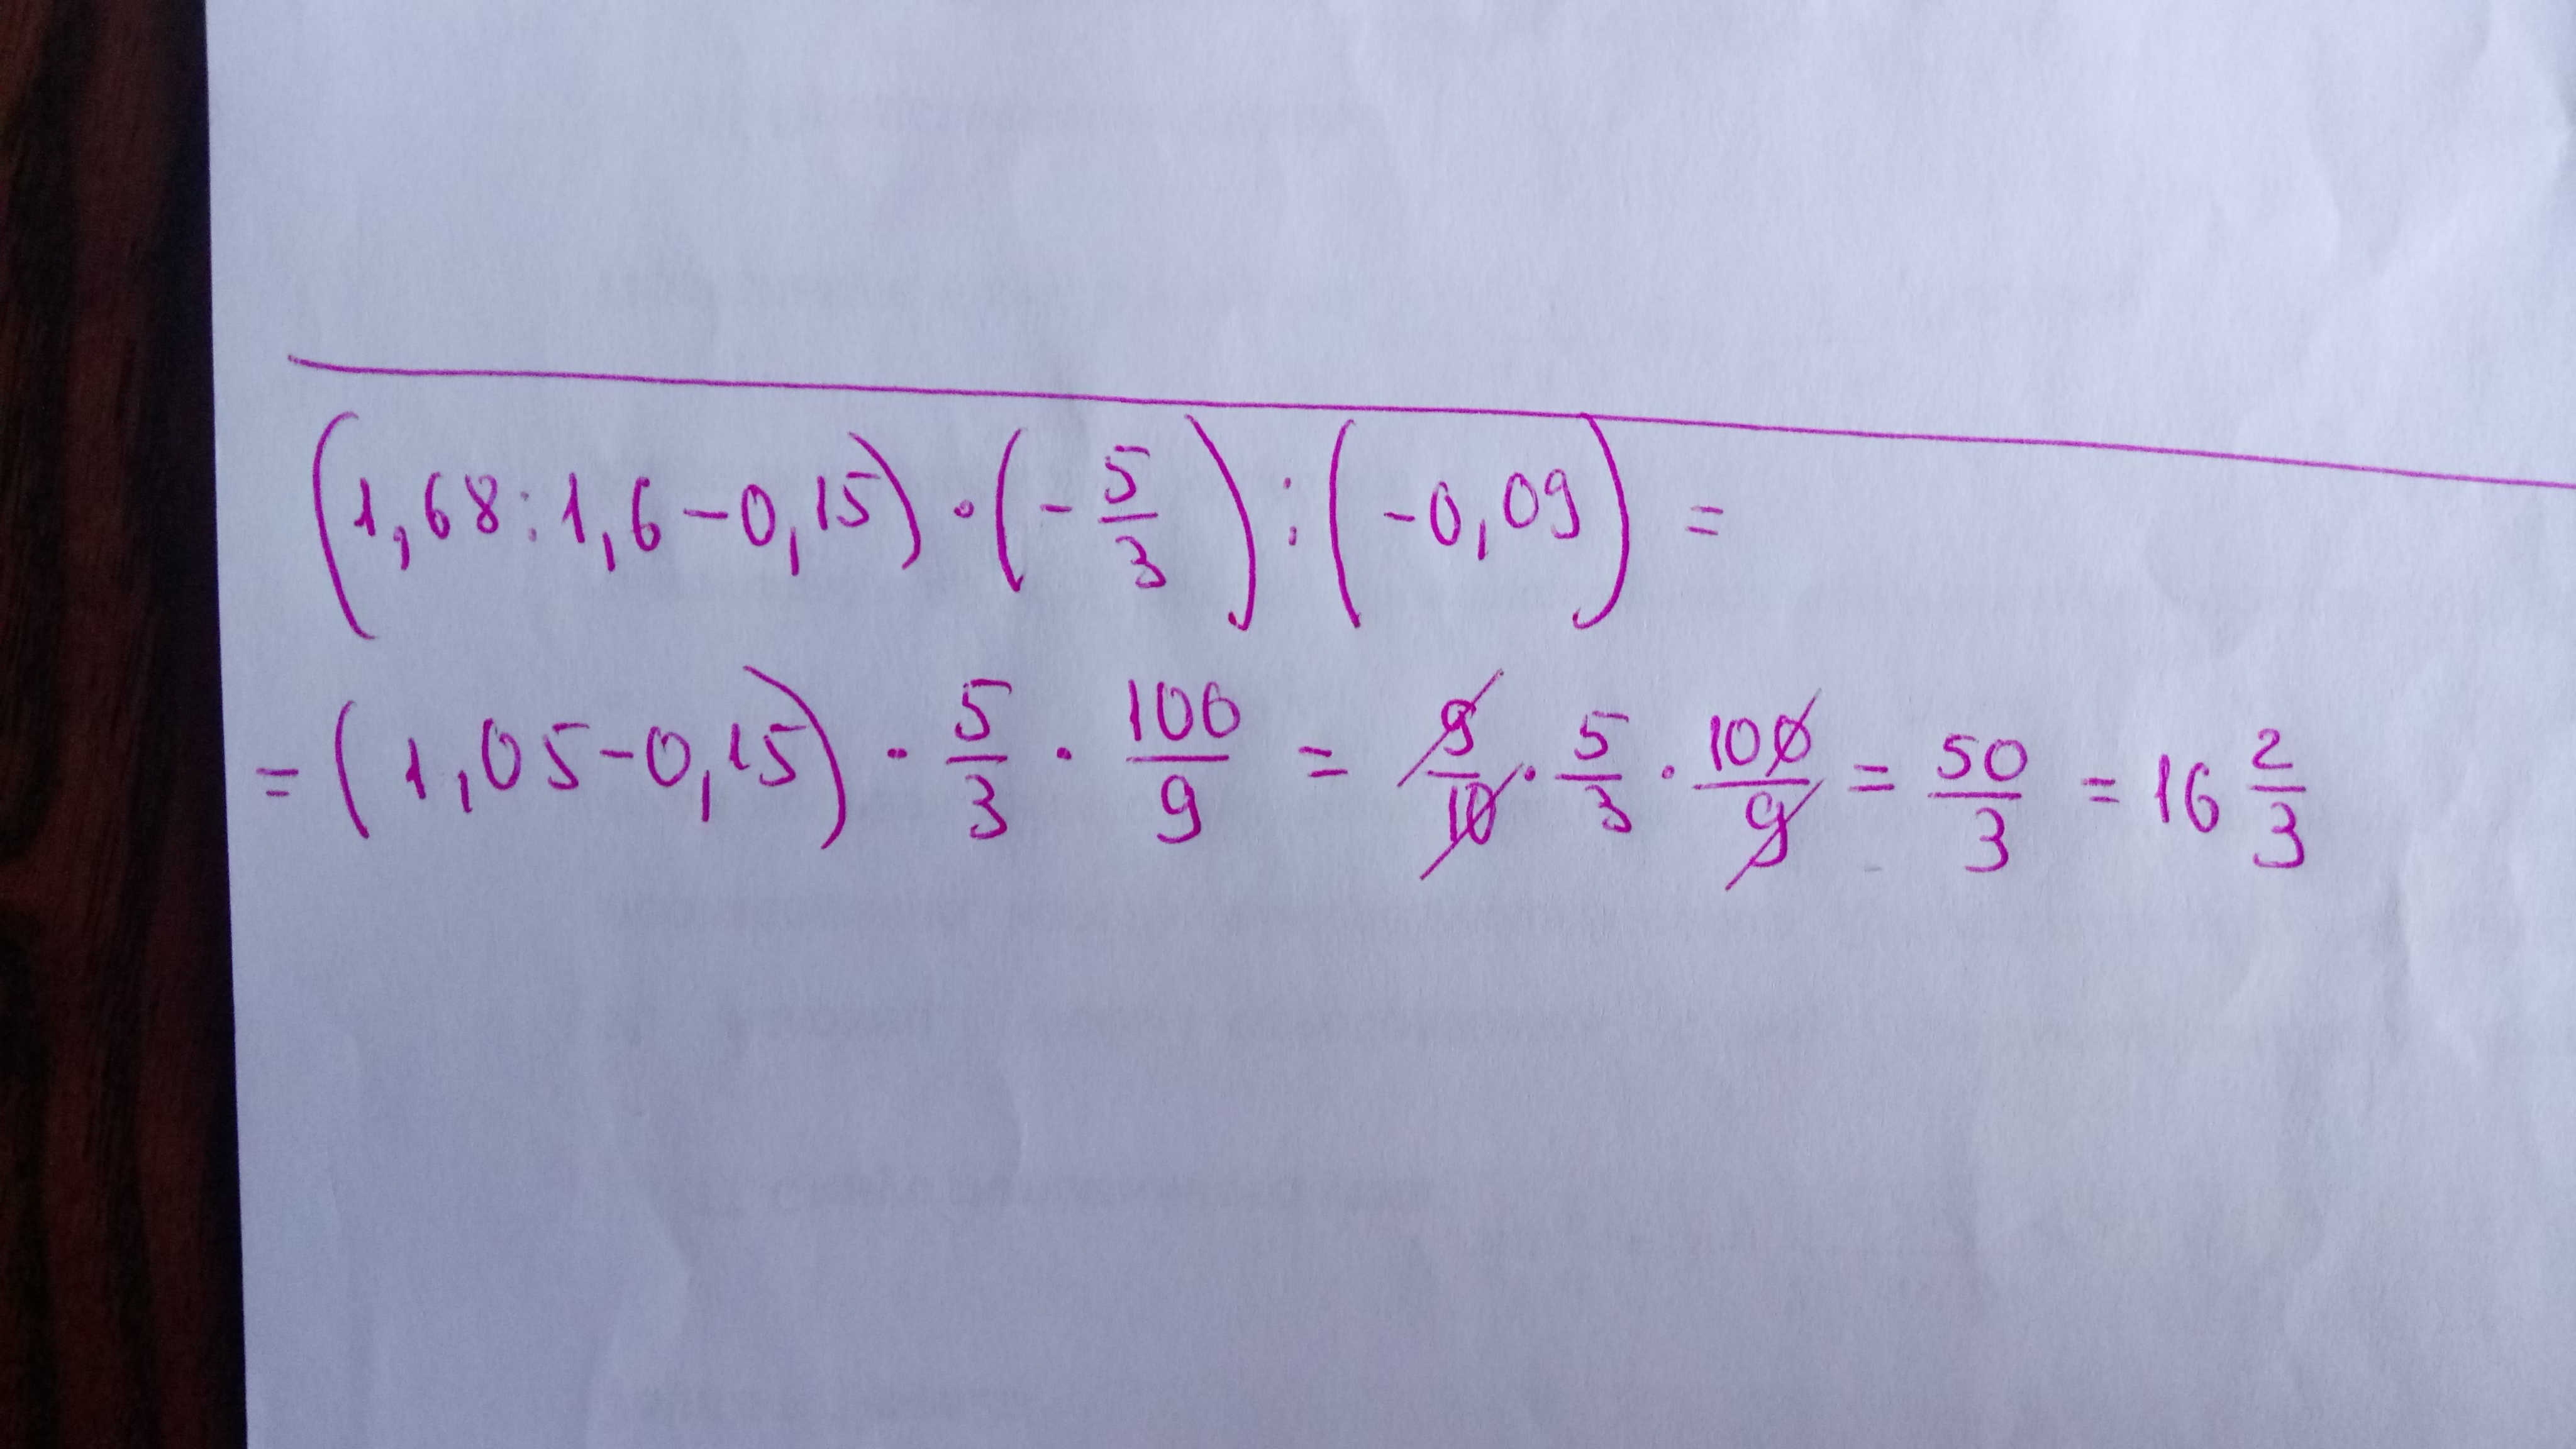 (1,68:1,6-0,15)·(-5/3):(-0,09)=
=(1,05-0,15)·5/3·100/9=9/10·5/3·100/9=50/3=16 2/3